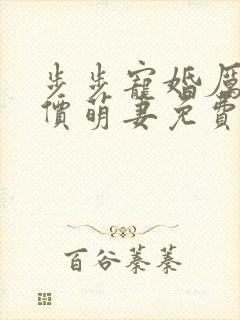 步步寵婚厲
價萌妻免費
百谷蓁蓁